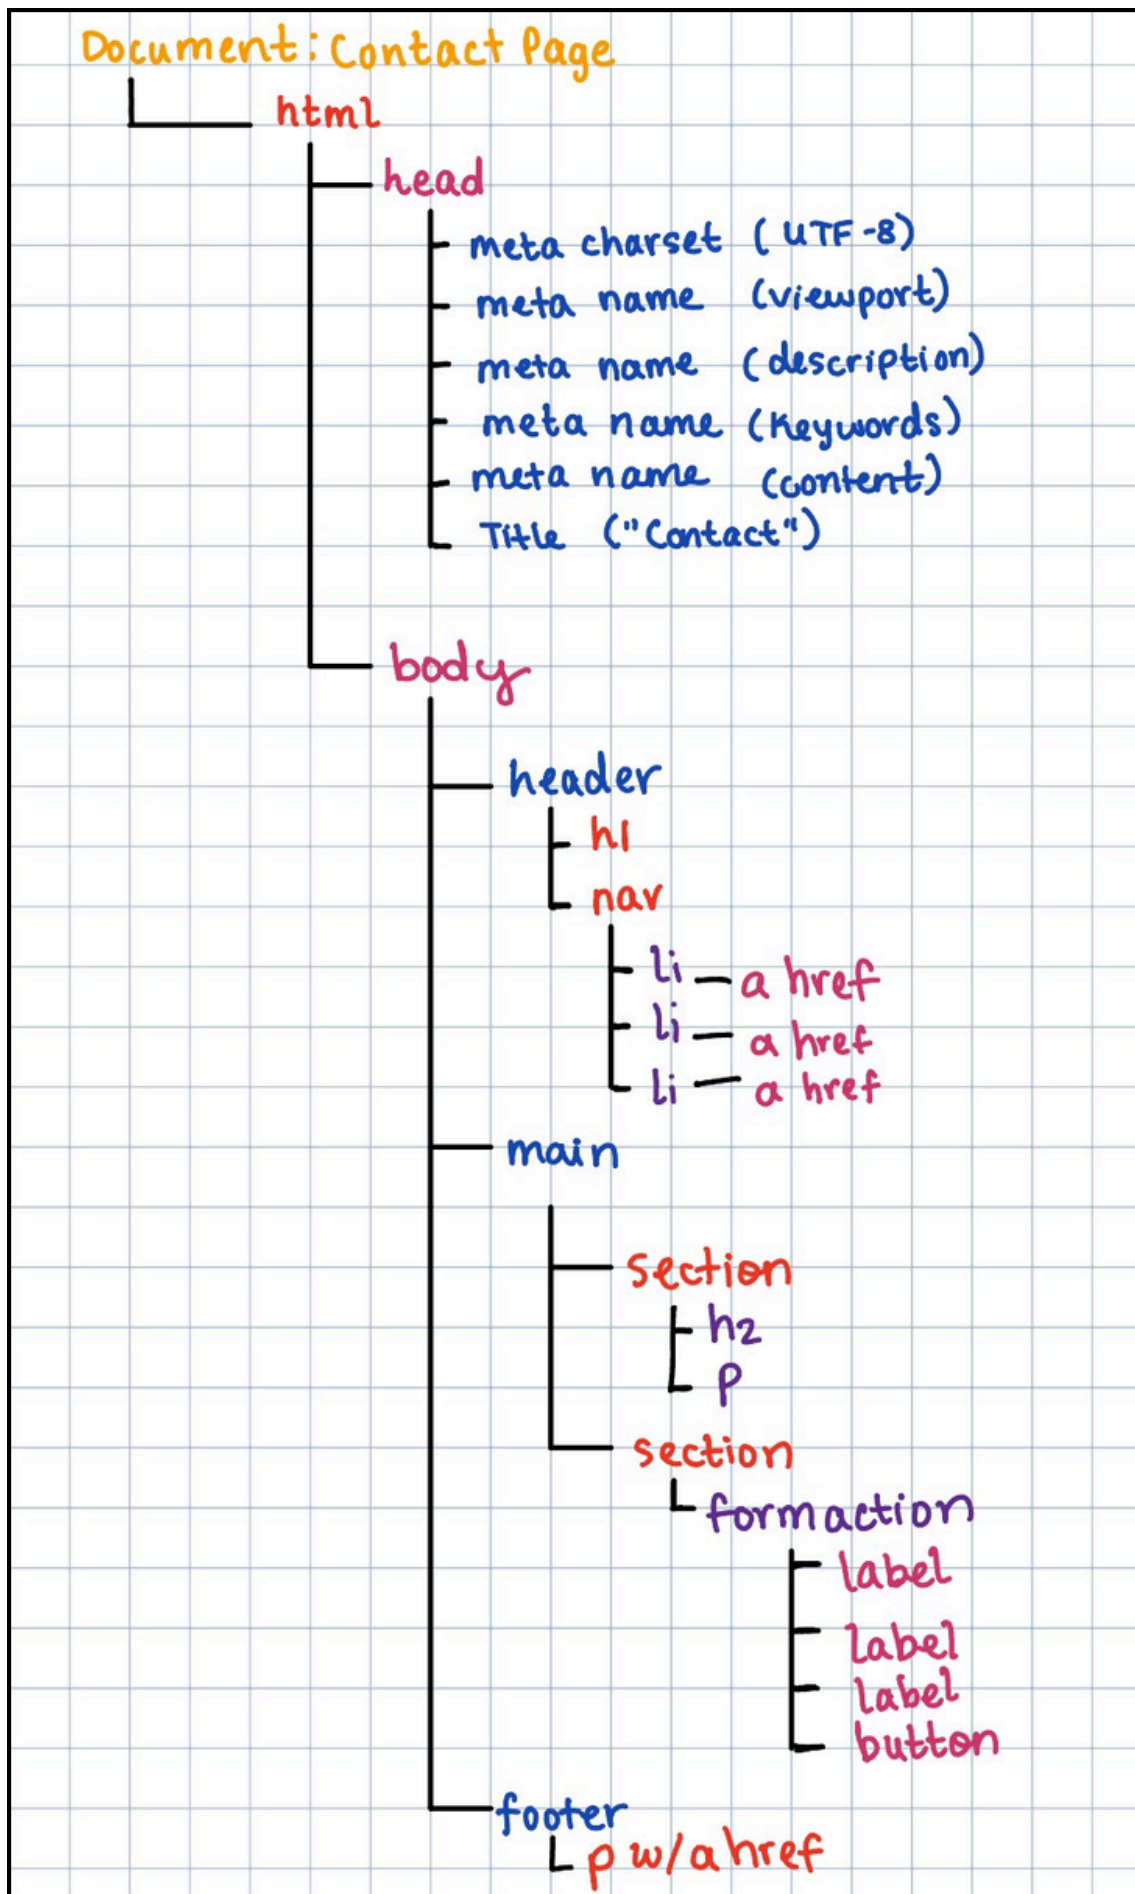 Document: Contact Page
html
head
meta charset (UTF-8)
meta name (viewport)
meta name (description)
meta name (Keywords)
meta name (content)
Title ("Contact")
body
header
h1
nav
li a href
li a href
li a href
main
section
h2
p
section
form action
label
label
label
button
footer
p w/ a href